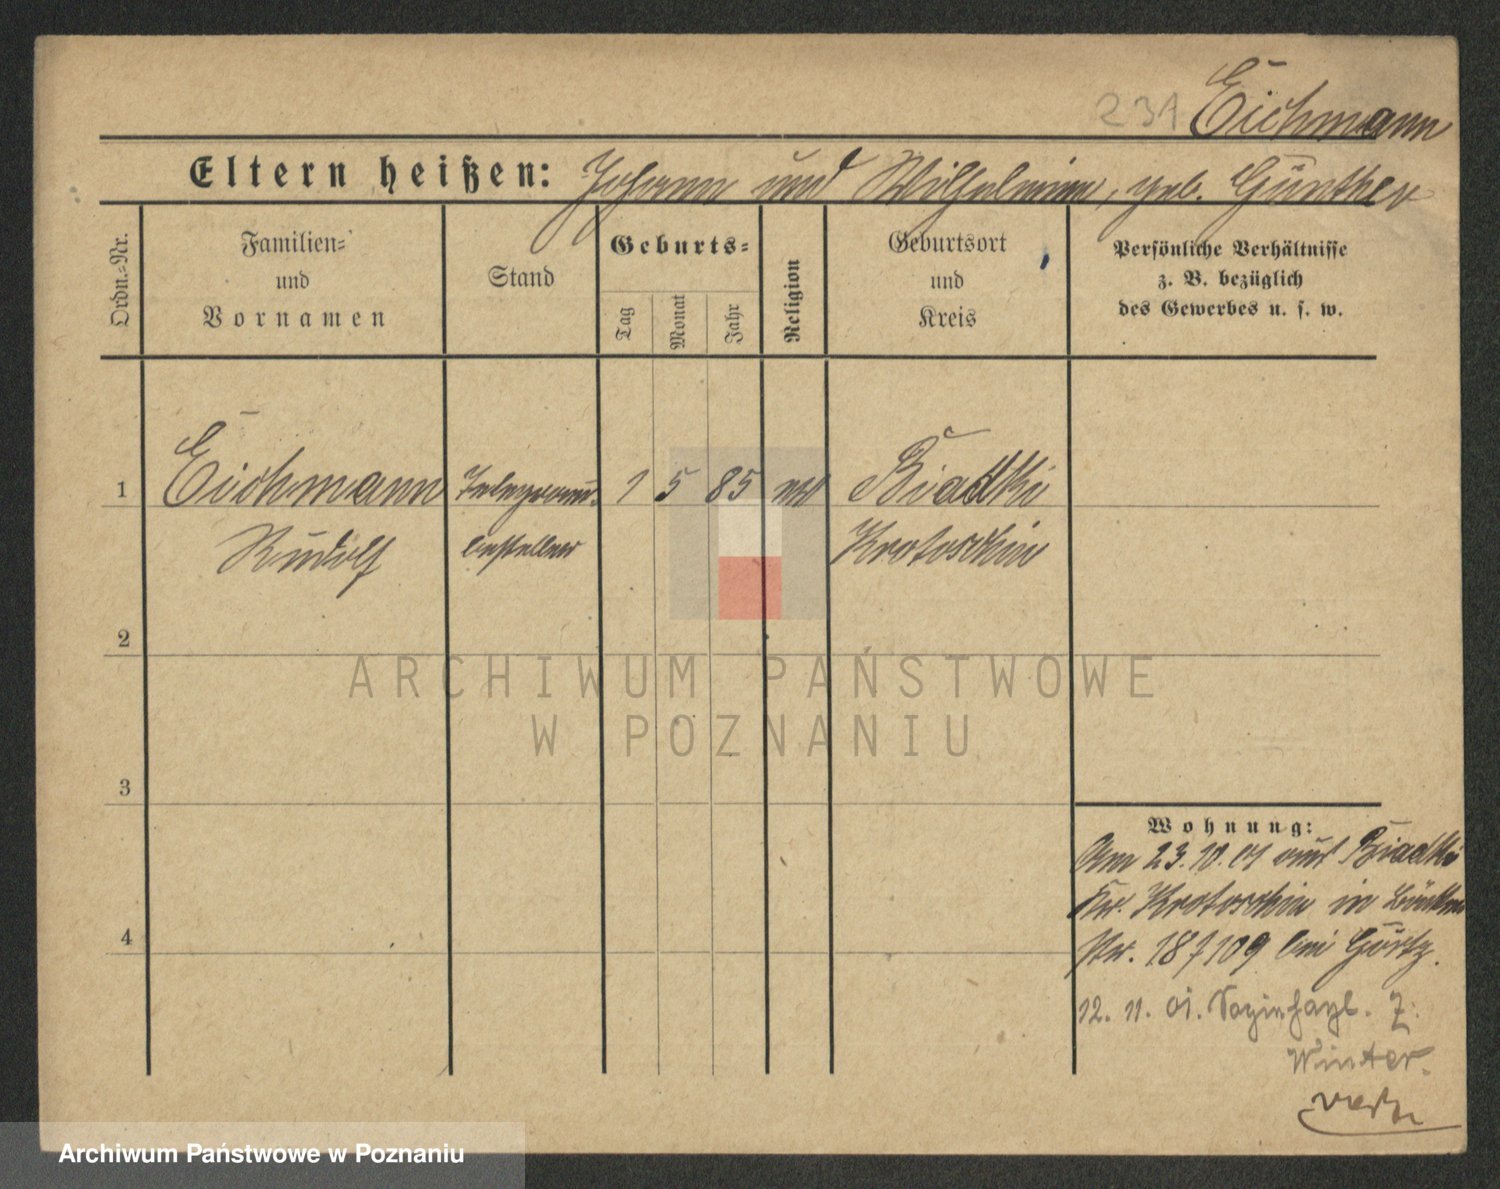 231 Eichmann
Eltern heißen: Johann und Wilhelmine, geb. Günther
Ordn.=Nr.
Familien=
und
Vornamen
Stand
Geburts=
Tag
Monat
Jahr
Religion
Geburtsort
und
Kreis
Persönliche Verhältnisse
z. B. bezüglich
des Gewerbes u. s. w.
1 Eichmann 1 5 85 Biadki
Rudolf besteller Krotoschin
2
3
4
Wohnung:
Am 23.10.01 aus Biadki
Kr. Krotoschin in
Nr. 187109 bei Görtz.
12. 11. 01.
Winter.
ARCHIWUM PAŃSTWOWE
W POZNANIU
Archiwum Państwowe w Poznaniu